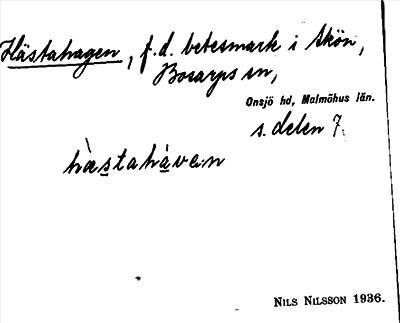 Hästahagen, f.d. betesmark i Skön,
Bosarps sn,
Onsjö hd, Malmöhus län.
s. delen 7.
hàstahàven
NILS NILSSON 1936.